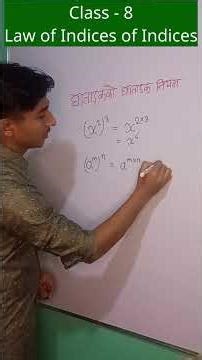 Class - 8
Law of Indices of Indices
घाताङ्कको घाताङ्क नियम
(x²)³ = x²ˣ³
= x⁶
(aᵐ)ⁿ = aᵐˣⁿ